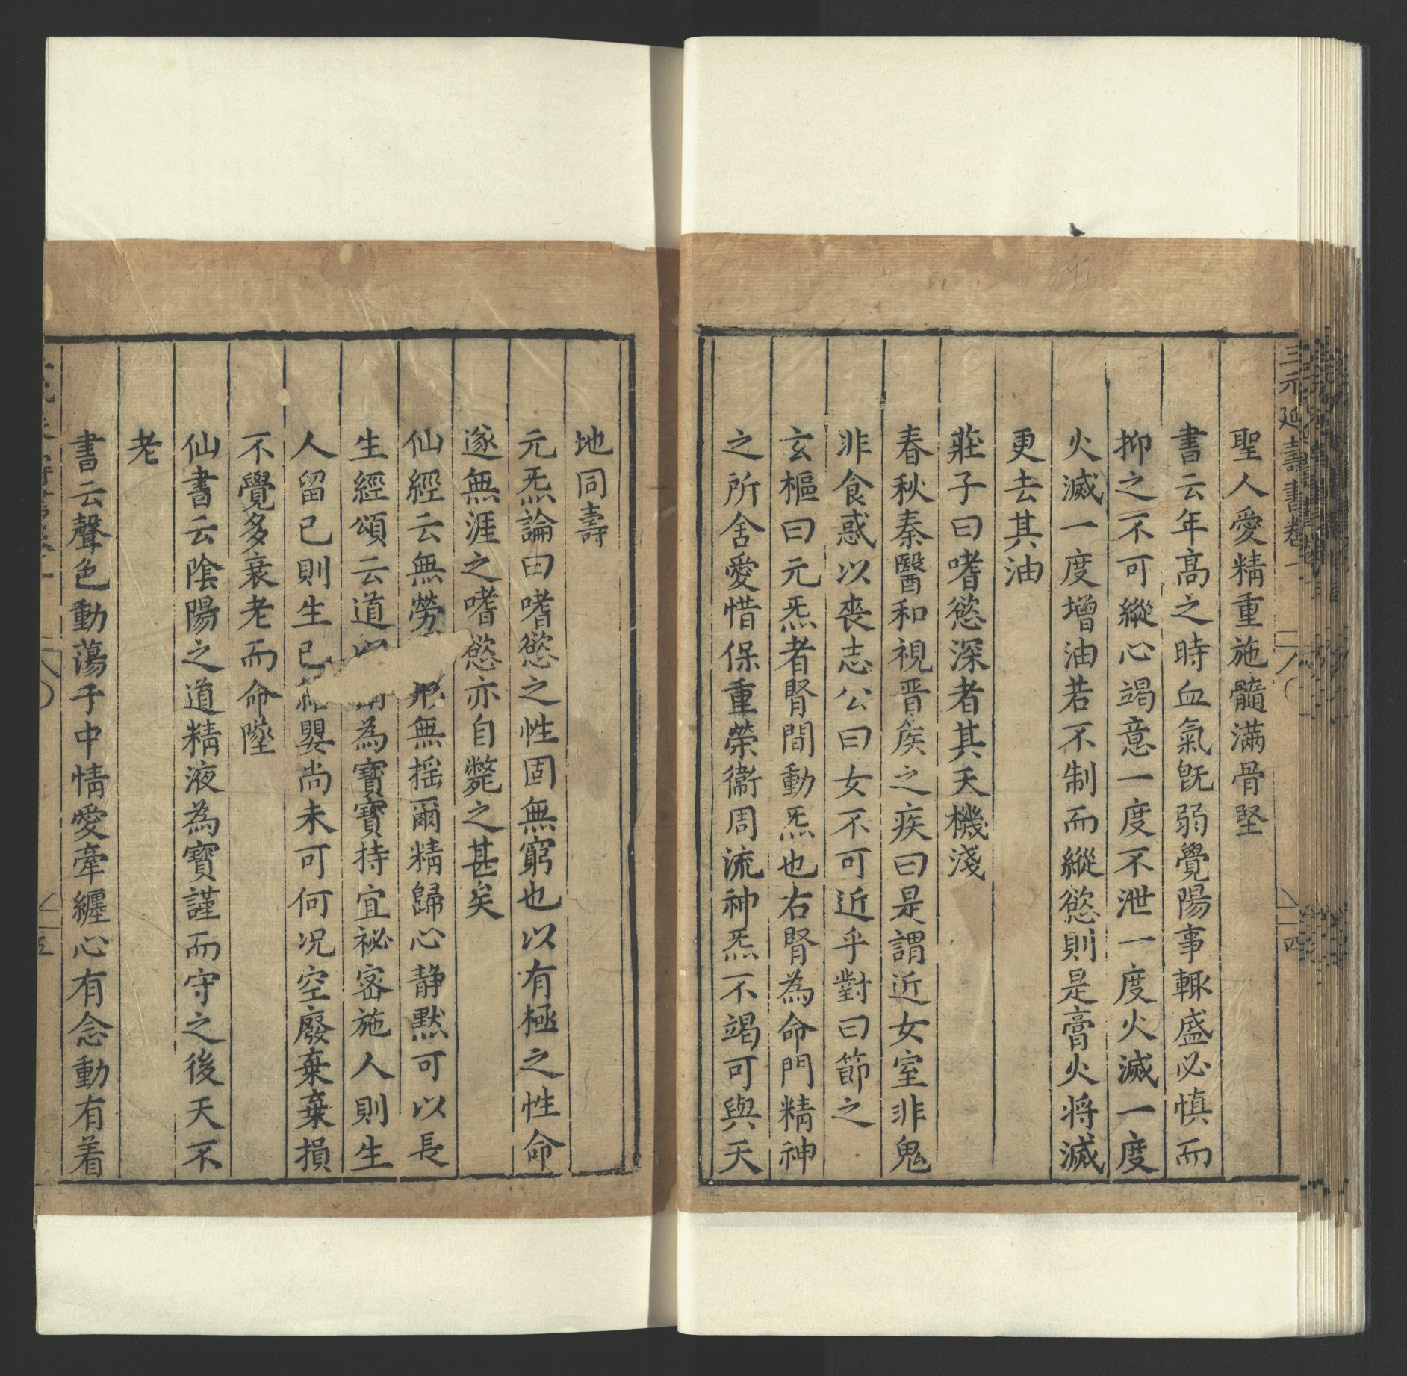 三元延壽書卷一
十四
聖人愛精重施髓滿骨堅
書云年高之時血氣旣弱覺陽事輙盛必慎而
抑之不可縱心竭意一度不泄一度火滅一度
火滅一度增油若不制而縱慾則是膏火将滅
更去其油
莊子曰嗜慾深者其天機淺
春秋秦醫和視晋矦之疾曰是謂近女室非鬼
非食惑以喪志公曰女不可近乎對曰節之
玄樞曰元炁者腎間動炁也右腎為命門精神
之所舍愛惜保重榮衞周流神炁不竭可與天
地同壽
元炁論曰嗜慾之性固無窮也以有極之性命
遂無涯之嗜慾亦自斃之甚矣
仙經云無勞形無揺爾精歸心静黙可以長
生經頌云道以為寳寳持宜祕宻施人則生
人留己則生己嬰尚未可何况空廢棄棄損
不覺多衰老而命墜
仙書云陰陽之道精液為寳謹而守之後天不
老
書云聲色動蕩于中情愛牽纒心有念動有着